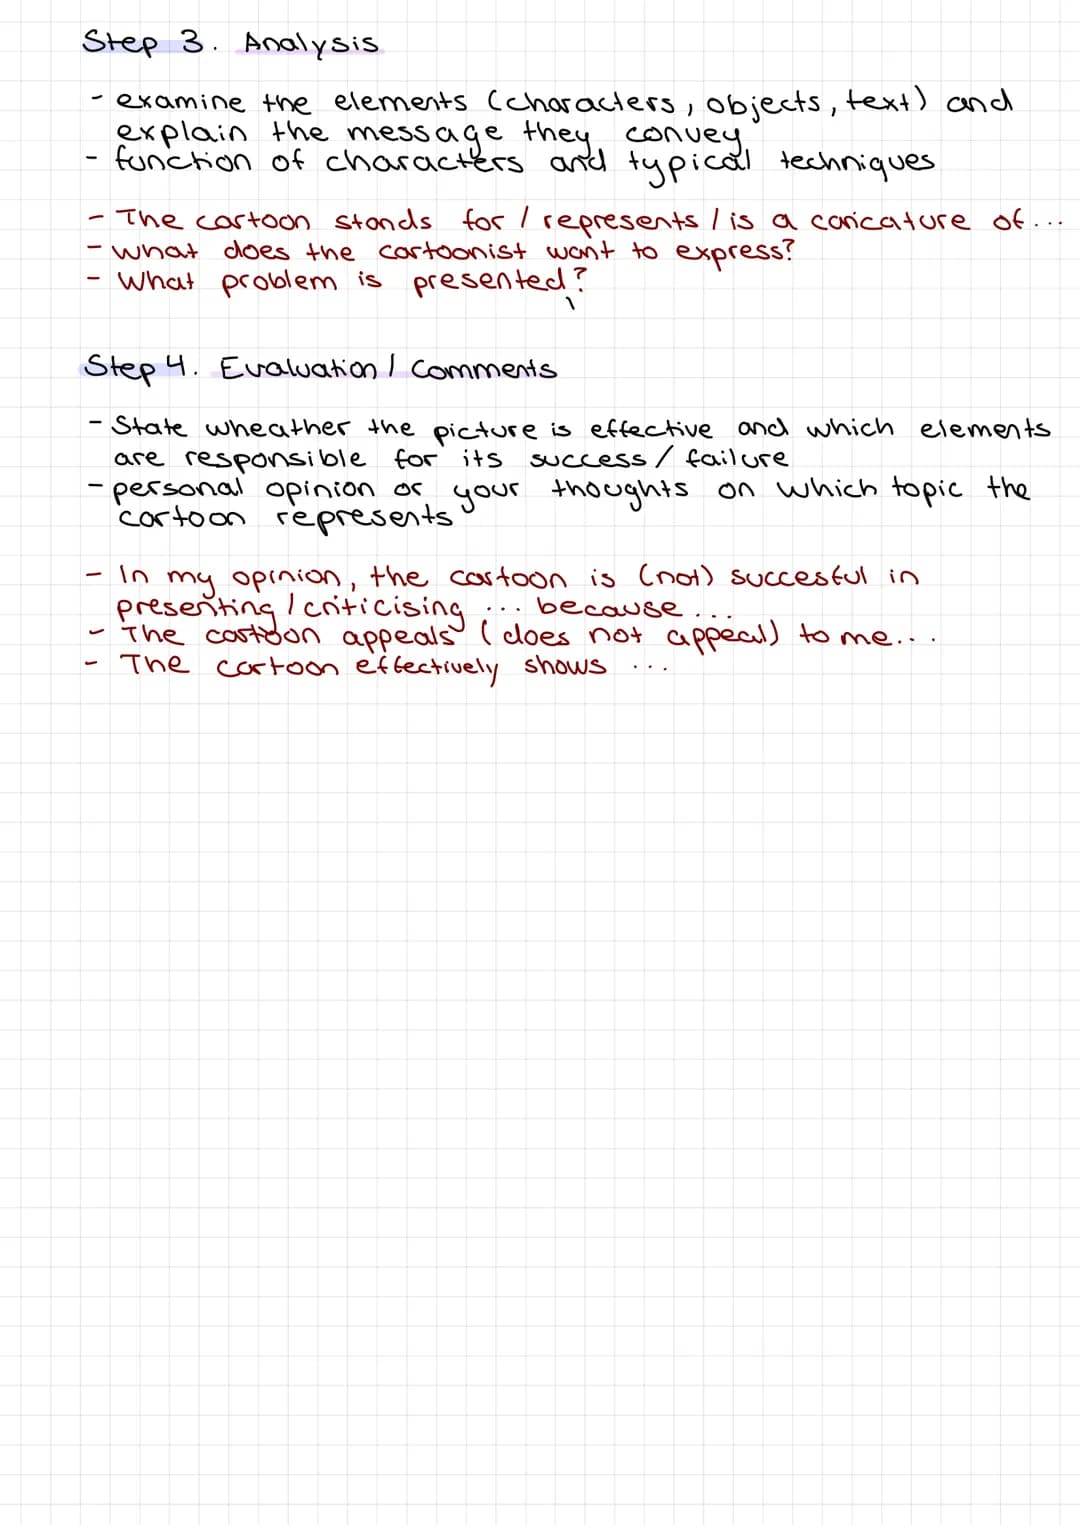 Step 3. Analysis
- examine the elements (characters, objects, text) and
explain the message they convey
- function of characters and typical techniques
- The cartoon stands for / represents / is a caricature of...
- what does the cartoonist want to express?
- What problem is presented?
Step 4. Evaluation / Comments
- State wheather the picture is effective and which elements
are responsible for its success / failure
- personal opinion or your thoughts on which topic the
cartoon represents
- In my opinion, the cartoon is (not) succesful in
presenting / criticising ... because ...
- The cartoon appeals (does not appeal) to me...
- The cartoon effectively shows ...